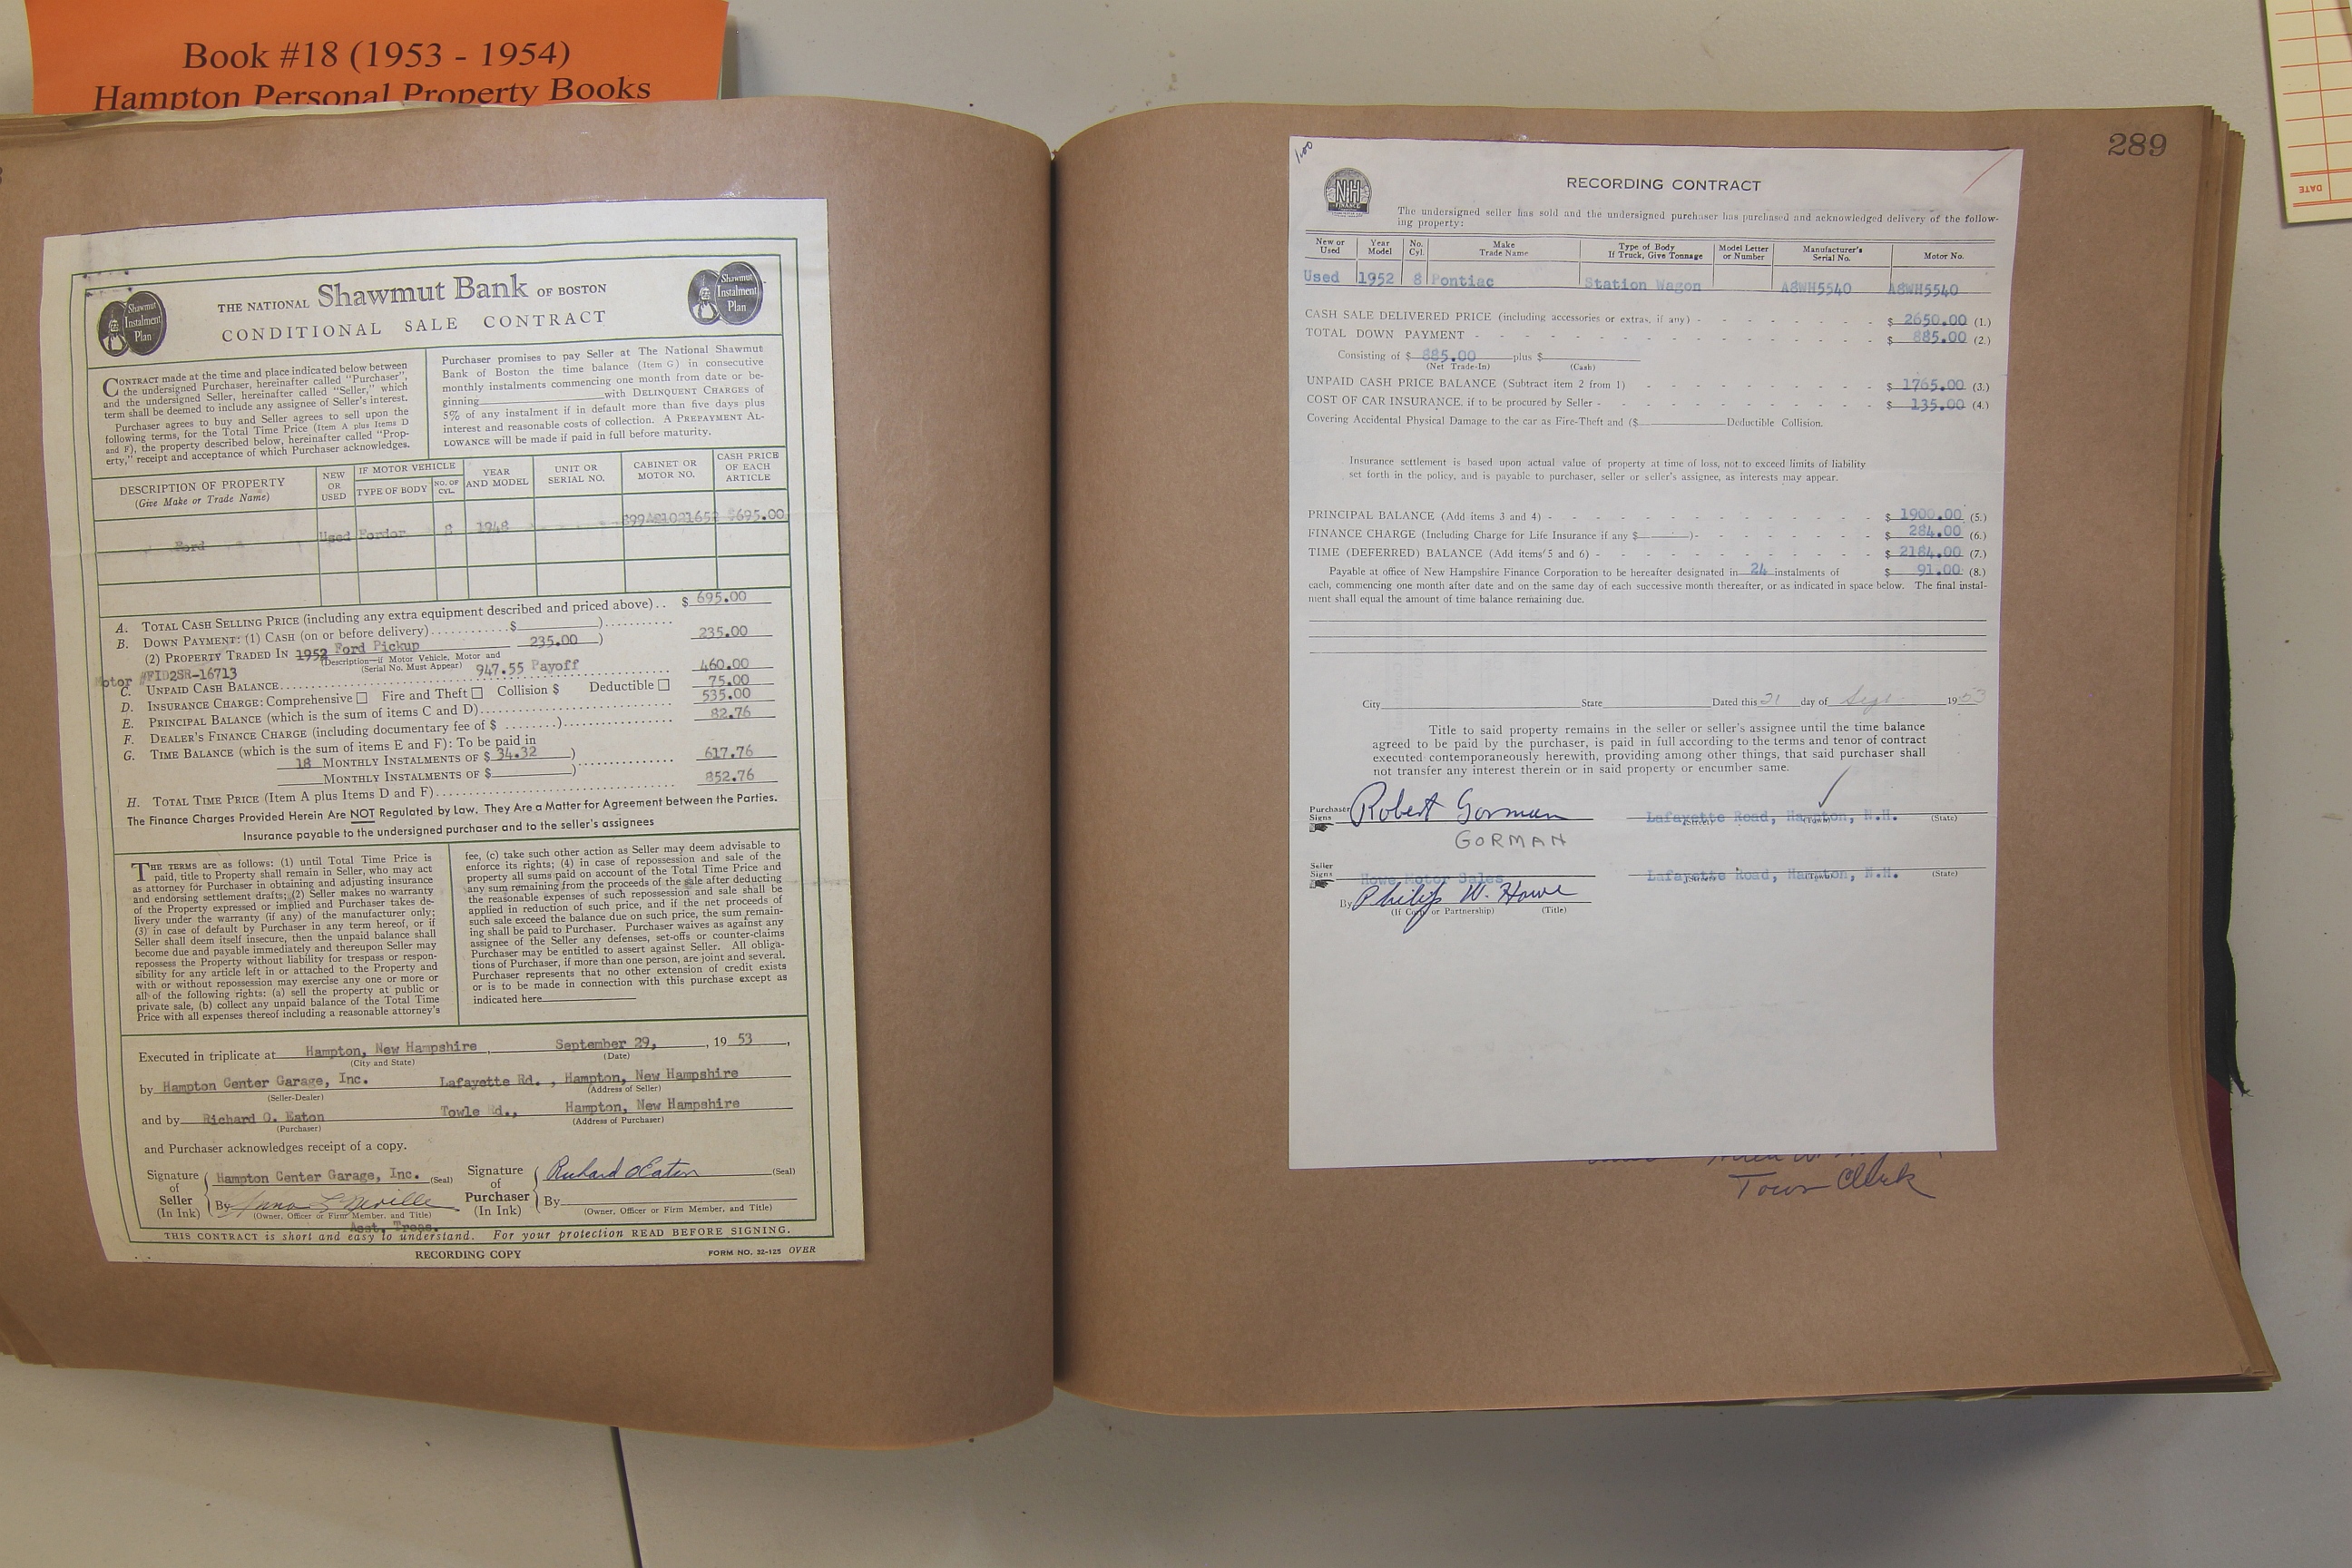 Book #18 (1953 - 1954)
Hampton Personal Property Books
Shawmut Instalment Plan
THE NATIONAL Shawmut Bank OF BOSTON
CONDITIONAL SALE CONTRACT
Shawmut Instalment Plan
CONTRACT made at the time and place indicated below between
the undersigned Purchaser, hereinafter called "Purchaser",
and the undersigned Seller, hereinafter called "Seller," which
term shall be deemed to include any assignee of Seller's interest.
Purchaser agrees to buy and Seller agrees to sell upon the
following terms, for the Total Time Price (Item A plus Items D
and F), the property described below, hereinafter called "Prop-
erty," receipt and acceptance of which Purchaser acknowledges.
Purchaser promises to pay Seller at The National Shawmut
Bank of Boston the time balance (Item G) in consecutive
monthly instalments commencing one month from date or be-
ginning with DELINQUENT CHARGES of
5% of any instalment if in default more than five days plus
interest and reasonable costs of collection. A PREPAYMENT AL-
LOWANCE will be made if paid in full before maturity.
DESCRIPTION OF PROPERTY (Give Make or Trade Name) NEW OR USED IF MOTOR VEHICLE TYPE OF BODY NO. OF CYL. YEAR AND MODEL UNIT OR SERIAL NO. CABINET OR MOTOR NO. CASH PRICE OF EACH ARTICLE
Ford Used Fordor 8 1948 $695.00
A. TOTAL CASH SELLING PRICE (including any extra equipment described and priced above).. $ 695.00
B. DOWN PAYMENT: (1) CASH (on or before delivery)............$ )..........
(2) PROPERTY TRADED IN 1952 Ford Pickup 235.00 ) 235.00
(Description—if Motor Vehicle, Motor and Serial No. Must Appear)
Motor #FID2SR-16713 947.55 Payoff
C. UNPAID CASH BALANCE 460.00
D. INSURANCE CHARGE: Comprehensive ☐ Fire and Theft ☐ Collision $ Deductible ☐ 75.00
E. PRINCIPAL BALANCE (which is the sum of items C and D) 535.00
F. DEALER'S FINANCE CHARGE (including documentary fee of $ ........) 82.76
G. TIME BALANCE (which is the sum of items E and F): To be paid in
18 MONTHLY INSTALMENTS OF $ 34.32 ) 617.76
MONTHLY INSTALMENTS OF $ )
H. TOTAL TIME PRICE (Item A plus Items D and F) 852.76
The Finance Charges Provided Herein Are NOT Regulated by Law. They Are a Matter for Agreement between the Parties.
Insurance payable to the undersigned purchaser and to the seller's assignees
THE TERMS are as follows: (1) until Total Time Price is
paid, title to Property shall remain in Seller, who may act
as attorney for Purchaser in obtaining and adjusting insurance
and endorsing settlement drafts; (2) Seller makes no warranty
of the Property expressed or implied and Purchaser takes de-
livery under the warranty (if any) of the manufacturer only;
(3) in case of default by Purchaser in any term hereof, or if
Seller shall deem itself insecure, then the unpaid balance shall
become due and payable immediately and thereupon Seller may
repossess the Property without liability for trespass or respon-
sibility for any article left in or attached to the Property and
with or without repossession may exercise any one or more or
all of the following rights: (a) sell the property at public or
private sale, (b) collect any unpaid balance of the Total Time
Price with all expenses thereof including a reasonable attorney's
fee, (c) take such other action as Seller may deem advisable to
enforce its rights; (4) in case of repossession and sale of the
property all sums paid on account of the Total Time Price and
any sum remaining from the proceeds of the sale after deducting
the reasonable expenses of such repossession and sale shall be
applied in reduction of such price, and if the net proceeds of
such sale exceed the balance due on such price, the sum remain-
ing shall be paid to Purchaser. Purchaser waives as against any
assignee of the Seller any defenses, set-offs or counter-claims
Purchaser may be entitled to assert against Seller. All obliga-
tions of Purchaser, if more than one person, are joint and several.
Purchaser represents that no other extension of credit exists
or is to be made in connection with this purchase except as
indicated here
Executed in triplicate at Hampton, New Hampshire, September 29, , 19 53 ,
(City and State) (Date)
by Hampton Center Garage, Inc. Lafayette Rd. , Hampton, New Hampshire
(Seller-Dealer) (Address of Seller)
and by Richard O. Eaton Towle Rd., Hampton, New Hampshire
(Purchaser) (Address of Purchaser)
and Purchaser acknowledges receipt of a copy.
Signature of Seller (In Ink) Hampton Center Garage, Inc. (Seal)
By Anna L Neville
(Owner, Officer or Firm Member, and Title)
Asst. Treas.
Signature of Purchaser (In Ink) Richard O Eaton (Seal)
By
(Owner, Officer or Firm Member, and Title)
THIS CONTRACT is short and easy to understand. For your protection READ BEFORE SIGNING.
RECORDING COPY FORM NO. 32-125 OVER
289
1.00
NH FINANCE
RECORDING CONTRACT
The undersigned seller has sold and the undersigned purchaser has purchased and acknowledged delivery of the follow-
ing property:
New or Used Year Model No. Cyl. Make Trade Name Type of Body If Truck, Give Tonnage Model Letter or Number Manufacturer's Serial No. Motor No.
Used 1952 8 Pontiac Station Wagon A8WH5540 A8WH5540
CASH SALE DELIVERED PRICE (including accessories or extras, if any) - $ 2650.00 (1.)
TOTAL DOWN PAYMENT - $ 885.00 (2.)
Consisting of $ 885.00 plus $
(Net Trade-In) (Cash)
UNPAID CASH PRICE BALANCE (Subtract item 2 from 1) - $ 1765.00 (3.)
COST OF CAR INSURANCE, if to be procured by Seller - $ 135.00 (4.)
Covering Accidental Physical Damage to the car as Fire-Theft and ($ Deductible Collision.
Insurance settlement is based upon actual value of property at time of loss, not to exceed limits of liability
set forth in the policy, and is payable to purchaser, seller or seller's assignee, as interests may appear.
PRINCIPAL BALANCE (Add items 3 and 4) - $ 1900.00 (5.)
FINANCE CHARGE (Including Charge for Life Insurance if any $ )- $ 284.00 (6.)
TIME (DEFERRED) BALANCE (Add items 5 and 6) - $ 2184.00 (7.)
Payable at office of New Hampshire Finance Corporation to be hereafter designated in 24 instalments of $ 91.00 (8.)
each, commencing one month after date and on the same day of each successive month thereafter, or as indicated in space below. The final instal-
ment shall equal the amount of time balance remaining due.
City State Dated this 21 day of Sept 1953
Title to said property remains in the seller or seller's assignee until the time balance
agreed to be paid by the purchaser, is paid in full according to the terms and tenor of contract
executed contemporaneously herewith, providing among other things, that said purchaser shall
not transfer any interest therein or in said property or encumber same.
Purchaser Signs Robert Gorman Lafayette Road, Hampton, N.H.
(Street) (Town) (State)
GORMAN
Seller Signs Howe Motor Sales Lafayette Road, Hampton, N.H.
(Street) (Town) (State)
By Philip W. Howe
(If Corp. or Partnership) (Title)
Town Clerk
DATE